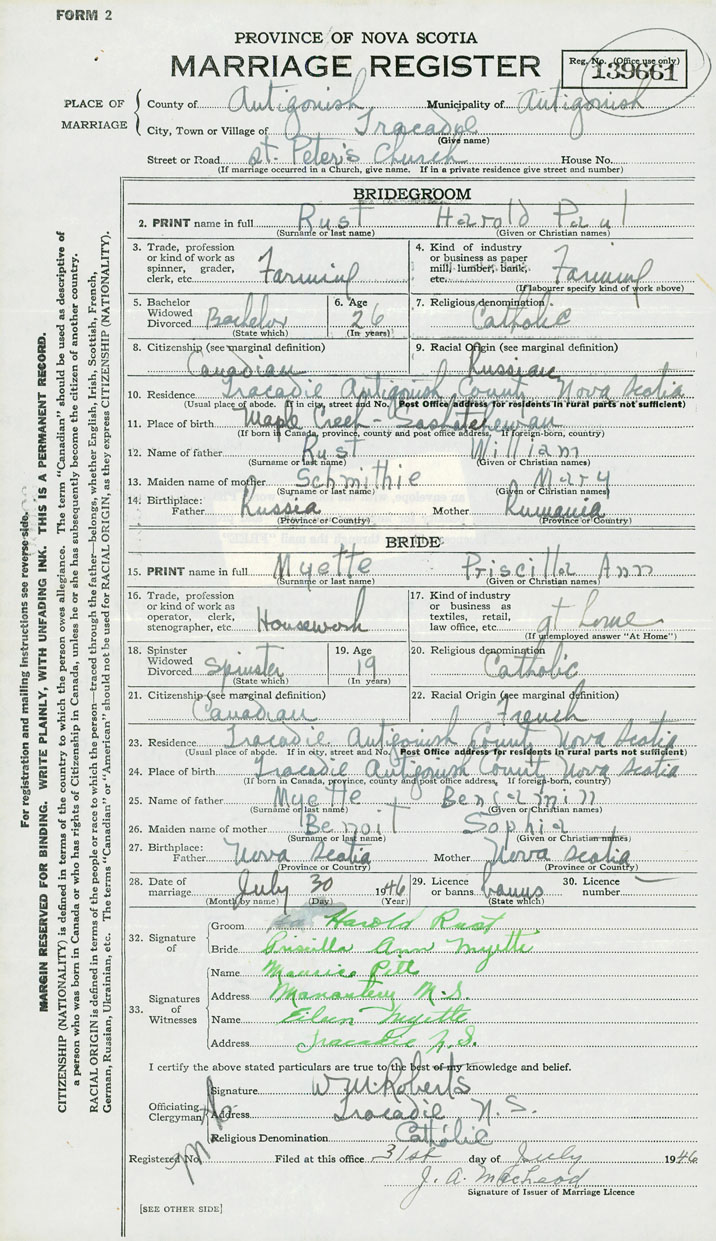 FORM 2
PROVINCE OF NOVA SCOTIA
MARRIAGE REGISTER
Reg. No. (Office use only)
139661
PLACE OF MARRIAGE
County of Antigonish Municipality of Antigonish
City, Town or Village of Tracadie
(Give name)
Street or Road St. Peter's Church House No.
(If marriage occurred in a Church, give name. If in a private residence give street and number)
BRIDEGROOM
2. PRINT name in full Rust Harold Paul
(Surname or last name) (Given or Christian names)
3. Trade, profession or kind of work as spinner, grader, clerk, etc. Farming
4. Kind of industry or business as paper mill, lumber, bank, etc. Farming
(If labourer specify kind of work above)
5. Bachelor Widowed Divorced Bachelor
(State which)
6. Age 26
(In years)
7. Religious denomination Catholic
8. Citizenship (see marginal definition) Canadian
9. Racial Origin (see marginal definition) Russian
10. Residence Tracadie Antigonish County Nova Scotia
(Usual place of abode. If in city, street and No. Post Office address for residents in rural parts not sufficient)
11. Place of birth Maple Creek - Saskatchewan
(If born in Canada, province, county and post office address, If foreign-born, country)
12. Name of father Rust William
(Surname or last name) (Given or Christian names)
13. Maiden name of mother Schmithie Mary
(Surname or last name) (Given or Christian names)
14. Birthplace: Father Russia Mother Rumania
(Province or Country) (Province or Country)
BRIDE
15. PRINT name in full Myette Priscilla Ann
(Surname or last name) (Given or Christian names)
16. Trade, profession or kind of work as operator, clerk, stenographer, etc. Housework
17. Kind of industry or business as textiles, retail, law office, etc. at home
(If unemployed answer "At Home")
18. Spinster Widowed Divorced Spinster
(State which)
19. Age 19
(In years)
20. Religious denomination Catholic
21. Citizenship (see marginal definition) Canadian
22. Racial Origin (see marginal definition) French
23. Residence Tracadie Antigonish County Nova Scotia
(Usual place of abode. If in city, street and No. Post Office address for residents in rural parts not sufficient)
24. Place of birth Tracadie Antigonish County Nova Scotia
(If born in Canada, province, county and post office address, If foreign-born, country)
25. Name of father Myette Benjamin
(Surname or last name) (Given or Christian names)
26. Maiden name of mother Benoit Sophia
(Surname or last name) (Given or Christian names)
27. Birthplace: Father Nova Scotia Mother Nova Scotia
(Province or Country) (Province or Country)
28. Date of marriage July 30 1946
(Month by name) (Day) (Year)
29. Licence or banns banns
(State which)
30. Licence number
32. Signature of
Groom Harold Rust
Bride Priscilla Ann Myette
33. Signatures of Witnesses
Name Maurice Pitts
Address Monastery N.S.
Name Eileen Myette
Address Tracadie N.S.
I certify the above stated particulars are true to the best of my knowledge and belief.
Officiating Clergyman
Signature W M Roberts
Address Tracadie N.S.
Religious Denomination Catholic
Registered No. Filed at this office 31st day of July 1946
J. A. MacLeod
Signature of Issuer of Marriage Licence
[SEE OTHER SIDE]
For registration and mailing instructions see reverse side.
MARGIN RESERVED FOR BINDING. WRITE PLAINLY, WITH UNFADING INK. THIS IS A PERMANENT RECORD.
CITIZENSHIP (NATIONALITY) is defined in terms of the country to which the person owes allegiance. The term "Canadian" should be used as descriptive of
a person who was born in Canada or who has rights of Citizenship in Canada, unless he or she has subsequently become the citizen of another country.
RACIAL ORIGIN is defined in terms of the people or race to which the person—traced through the father—belongs, whether English, Irish, Scottish, French,
German, Russian, Ukrainian, etc. The terms "Canadian" or "American" should not be used for RACIAL ORIGIN, as they express CITIZENSHIP (NATIONALITY).